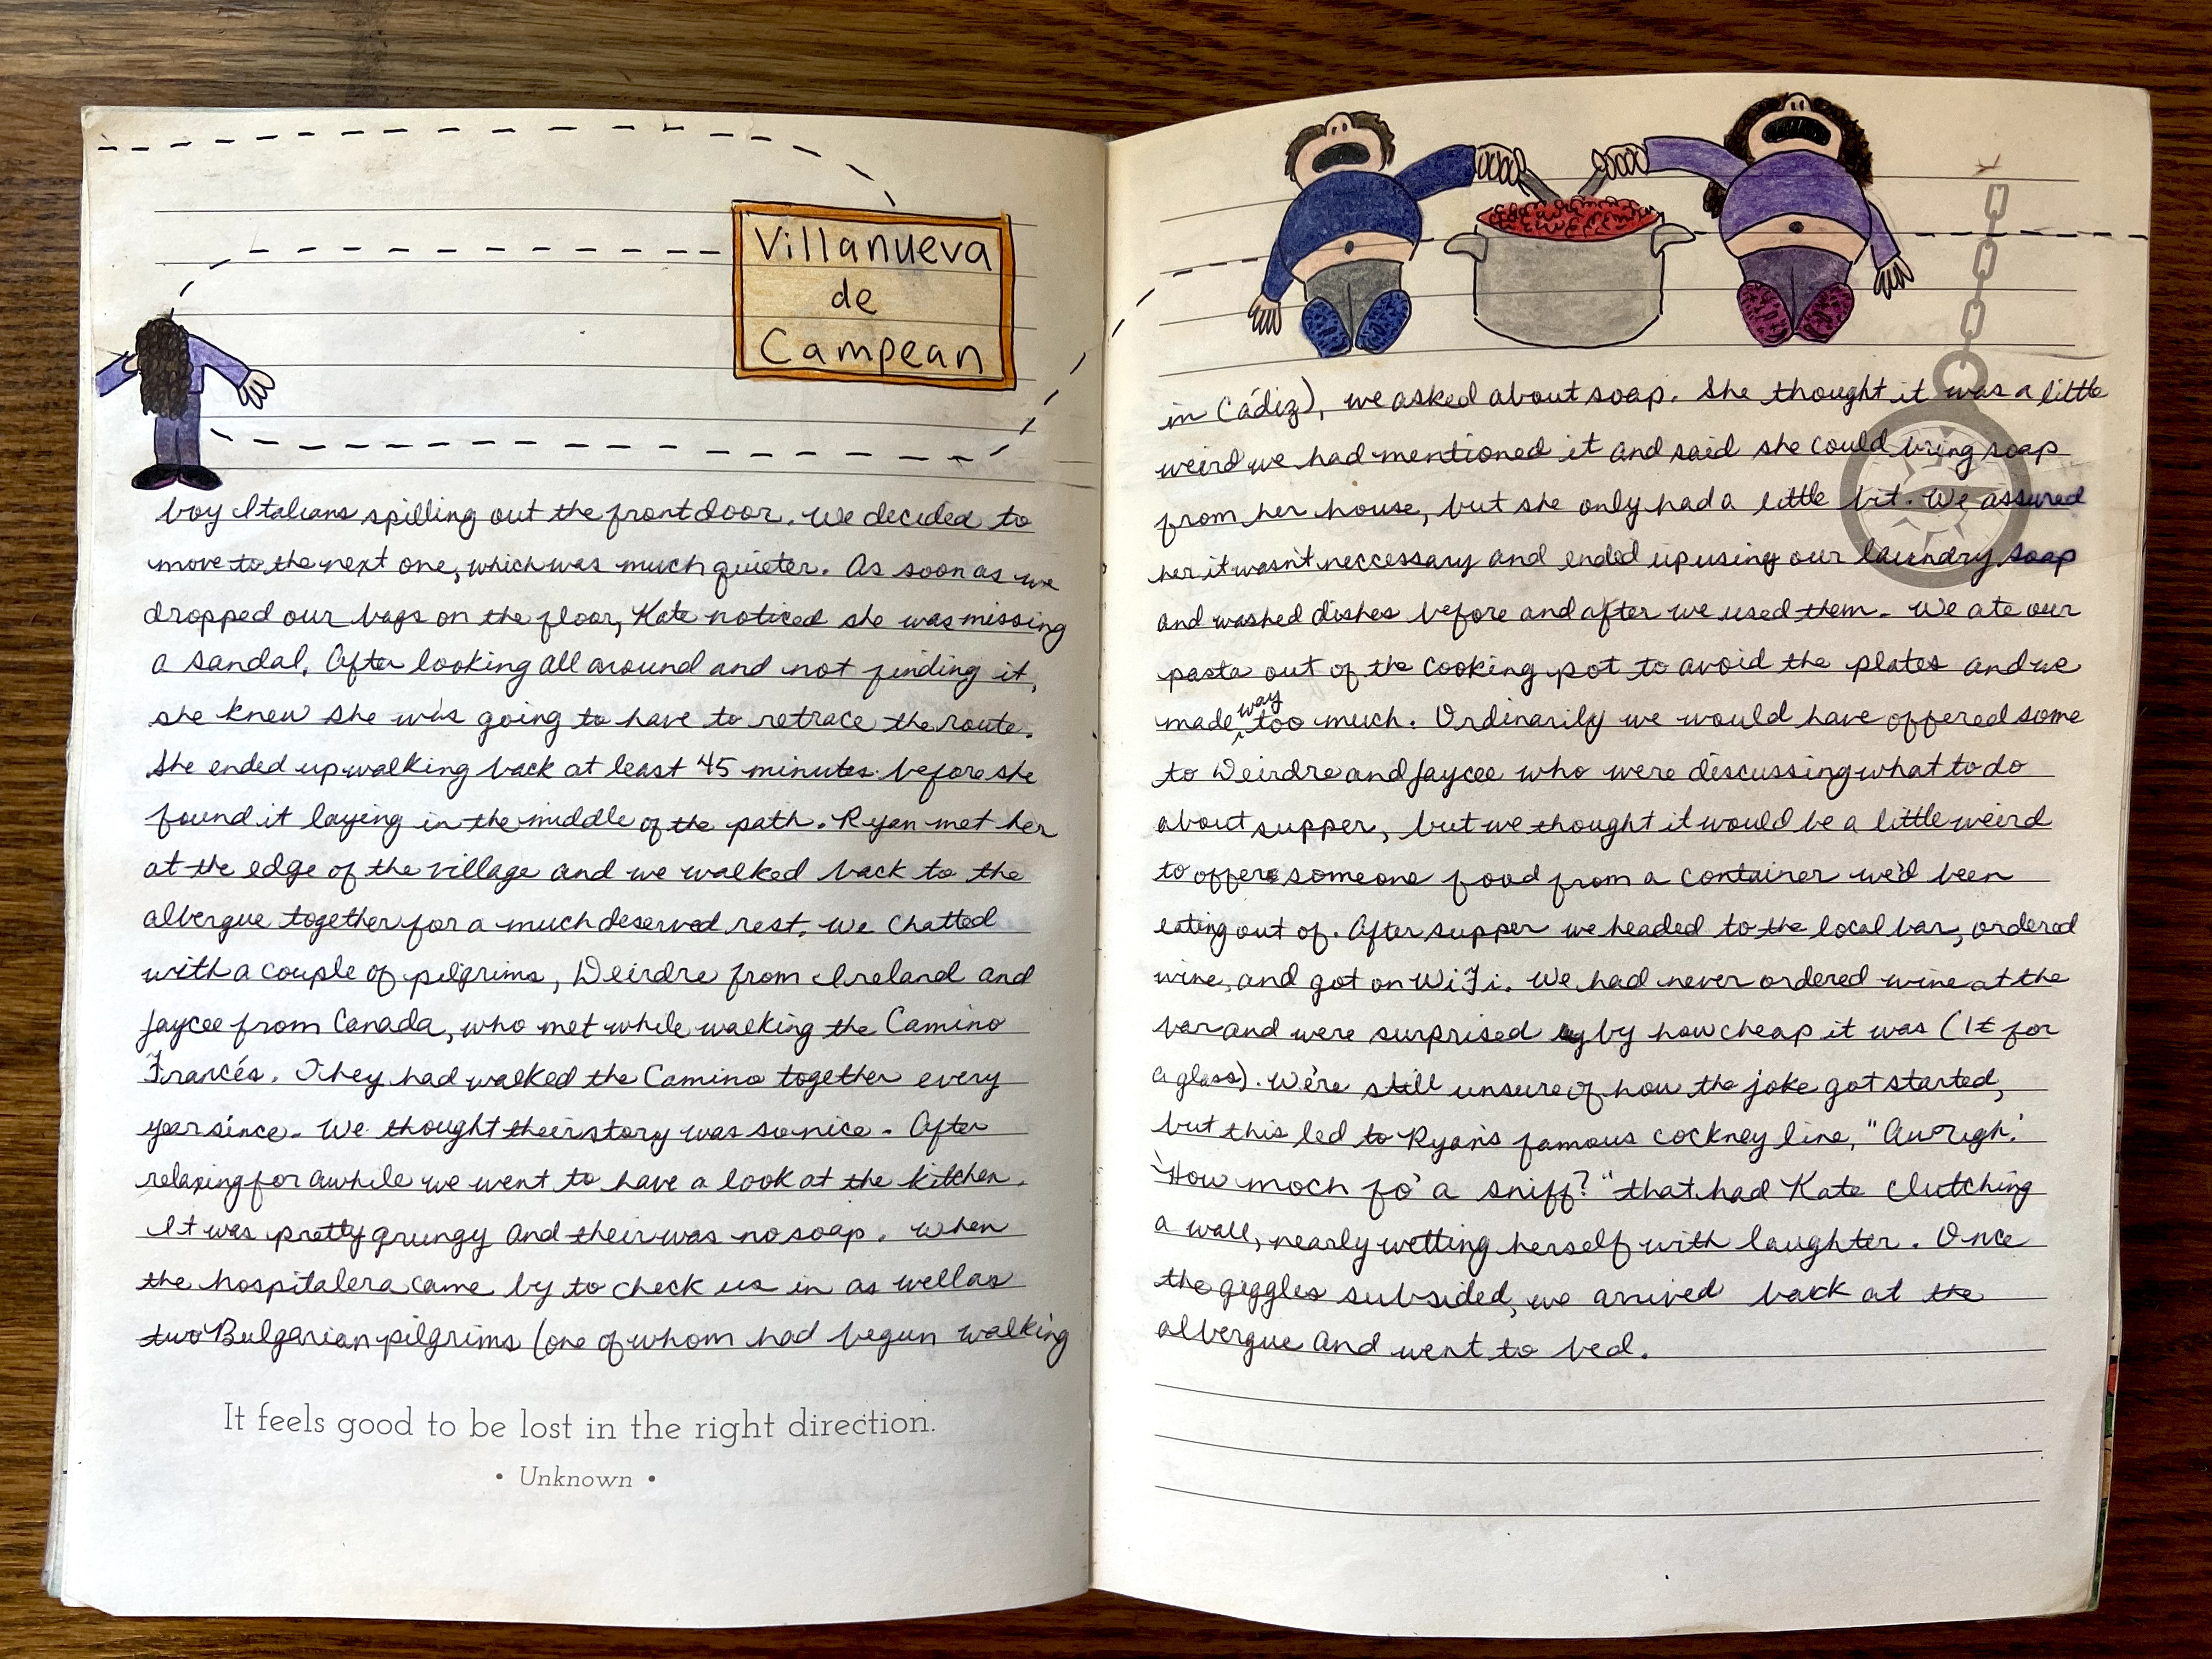 Villanueva
de
Campean
boy Italians spilling out the front door. We decided to
move to the next one, which was much quieter. As soon as we
dropped our bags on the floor, Kate noticed she was missing
a sandal. After looking all around and not finding it,
she knew she was going to have to retrace the route.
She ended up walking back at least 45 minutes before she
found it laying in the middle of the path. Ryan met her
at the edge of the village and we walked back to the
albergue together for a much deserved rest. We chatted
with a couple of pilgrims, Deirdre from Ireland and
Jaycee from Canada, who met while walking the Camino
Francés. They had walked the Camino together every
year since. We thought their story was so nice. After
relaxing for awhile we went to have a look at the kitchen.
It was pretty grungy and their was no soap. When
the hospitalera came by to check us in as well as
two Bulgarian pilgrims (one of whom had begun walking
It feels good to be lost in the right direction.
• Unknown •
in Cádiz), we asked about soap. She thought it was a little
weird we had mentioned it and said she could bring soap
from her house, but she only had a little bit. We assured
her it wasn't neccessary and ended up using our laundry soap
and washed dishes before and after we used them. We ate our
pasta out of the cooking pot to avoid the plates and we
made way too much. Ordinarily we would have offered some
to Deirdre and Jaycee who were discussing what to do
about supper, but we thought it would be a little weird
to offer someone food from a container we'd been
eating out of. After supper we headed to the local bar, ordered
wine, and got on WiFi. We had never ordered wine at the
bar and were surprised by how cheap it was (1€ for
a glass). We're still unsure of how the joke got started,
but this led to Ryan's famous cockney line, "
How moch fo' a sniff?" that had Kate clutching
a wall, nearly wetting herself with laughter. Once
the giggles subsided, we arrived back at the
albergue and went to bed.